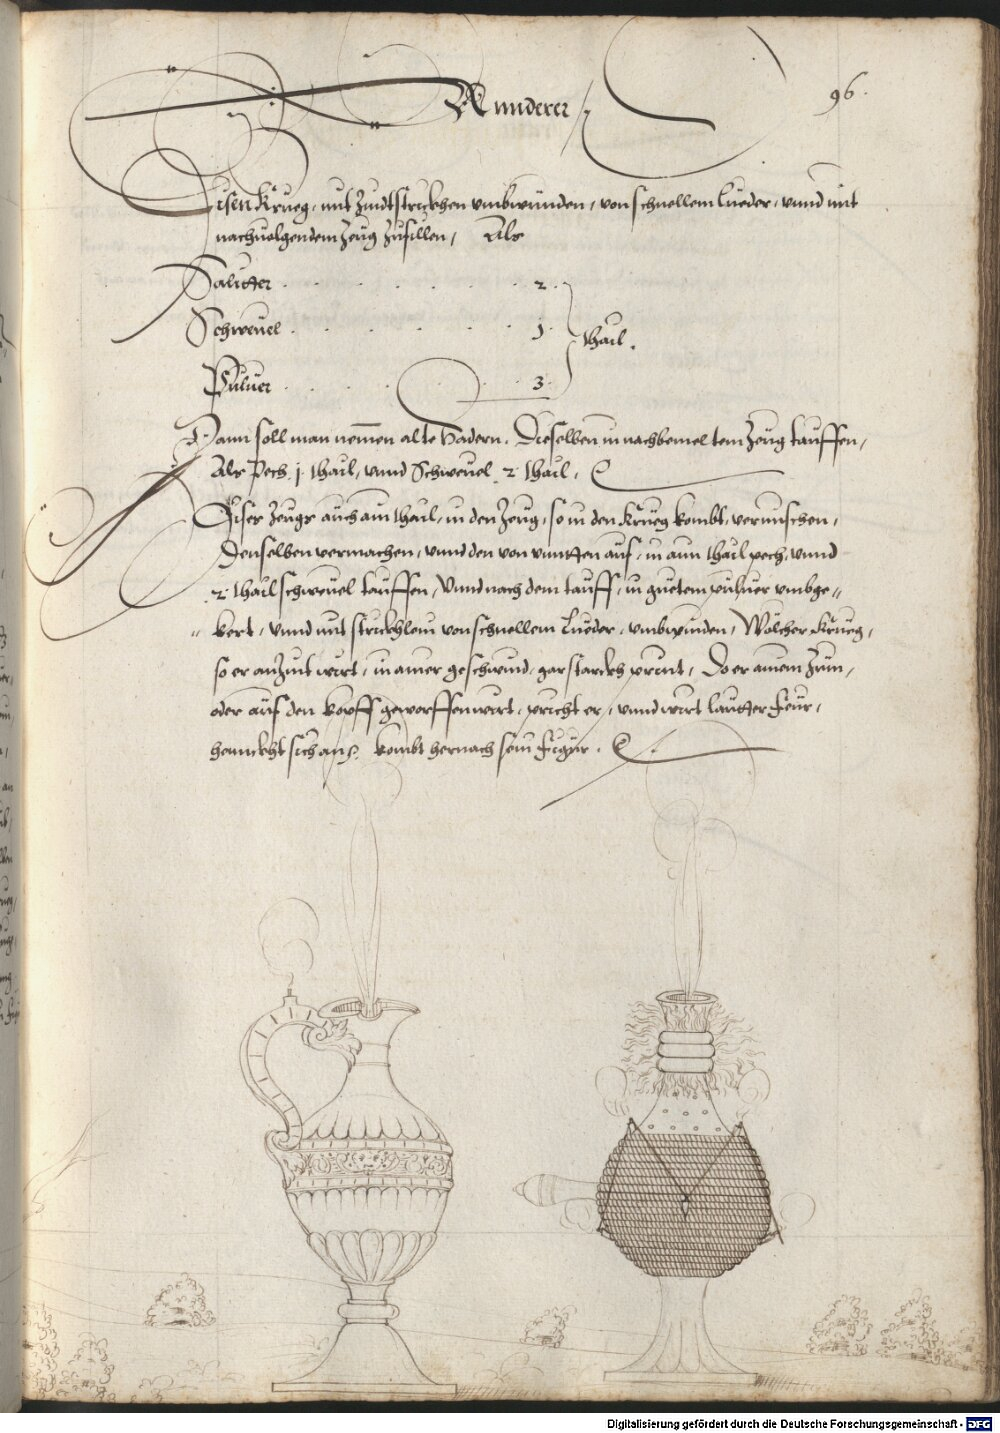 96.
Annderer /.
Disen Krueg, mit Zindtstrickhen umbwunden, von schnellem Lueder, unnd mit
nachvolgendem Zeug zufillen, Als
Salitter . . . . . . 2.
Schwevel . . . . . . 1. thail.
Pulver . . . . . . 3.
Dann soll man nemmen alte Hadern. Dieselben in nachbemeltem Zeug tauffen,
Als Pech 1 thail, unnd Schwevel 2 thail,
Diser Zeugs auch ain thail, in den Zeug, so in den Krueg kombt, vermischen,
Denselben vermachen, unnd den von unntten auf, in ain thail pech, unnd
2 thail schwevel tauffen, Unnd nach dem tauff, in guetem pulver umbge„
„ kert, unnd mit strickhlein von schnellem Lueder, umbwinden, Wölcher Krueg,
so er anzint wirt, in ainer geschwind, gar starckh print, Do er ainem
oder auf den kopff geworffen wirt, pricht er, unnd wirt lautter Feur,
hennckht sich an, kombt hernach sein Figur.
Digitalisierung gefördert durch die Deutsche Forschungsgemeinschaft - DFG